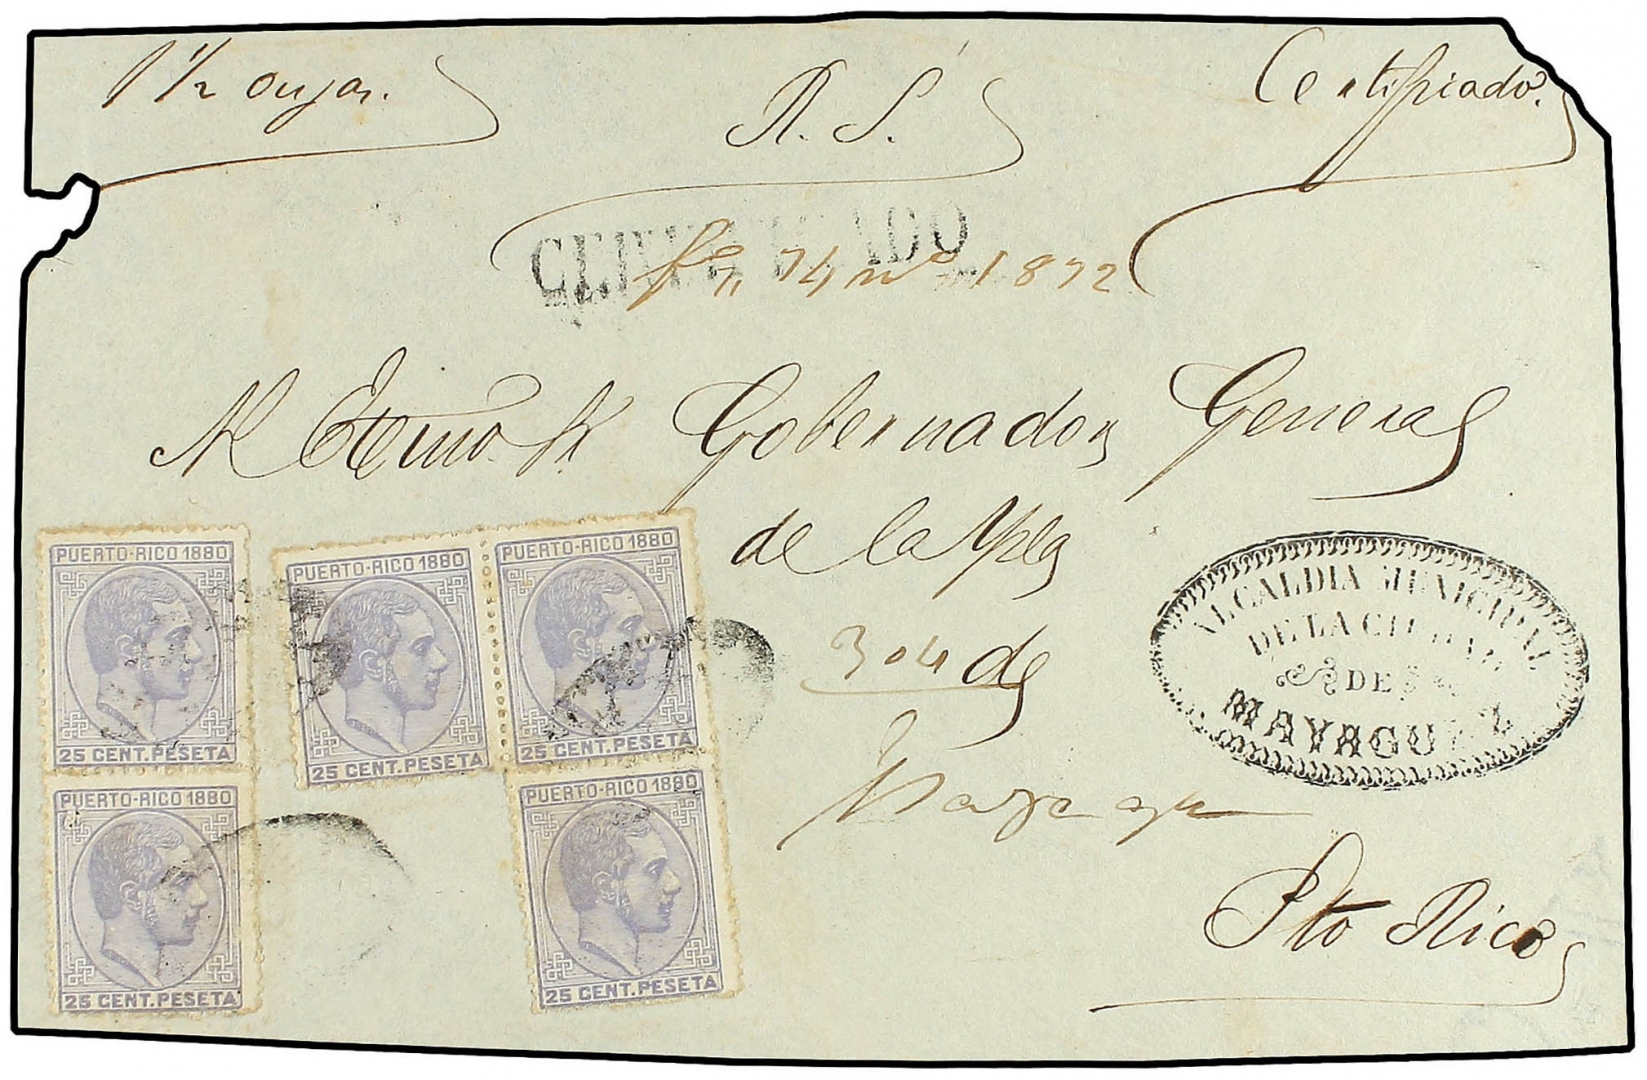 1 1/2 onzas.
R. S.
Certificado.
CERTIFICADO
fo 74 no 1872
Al Excmo. Sr. Gobernador General
de la Ysla
304 de
Pto Rico
ALCALDIA MUNICIPAL
DE LA CIUDAD
DE
MAYAGUEZ
PUERTO-RICO 1880
25 CENT. PESETA
PUERTO-RICO 1880
25 CENT. PESETA
PUERTO-RICO 1880
25 CENT. PESETA
PUERTO-RICO 1880
25 CENT. PESETA
PUERTO-RICO 1880
25 CENT. PESETA